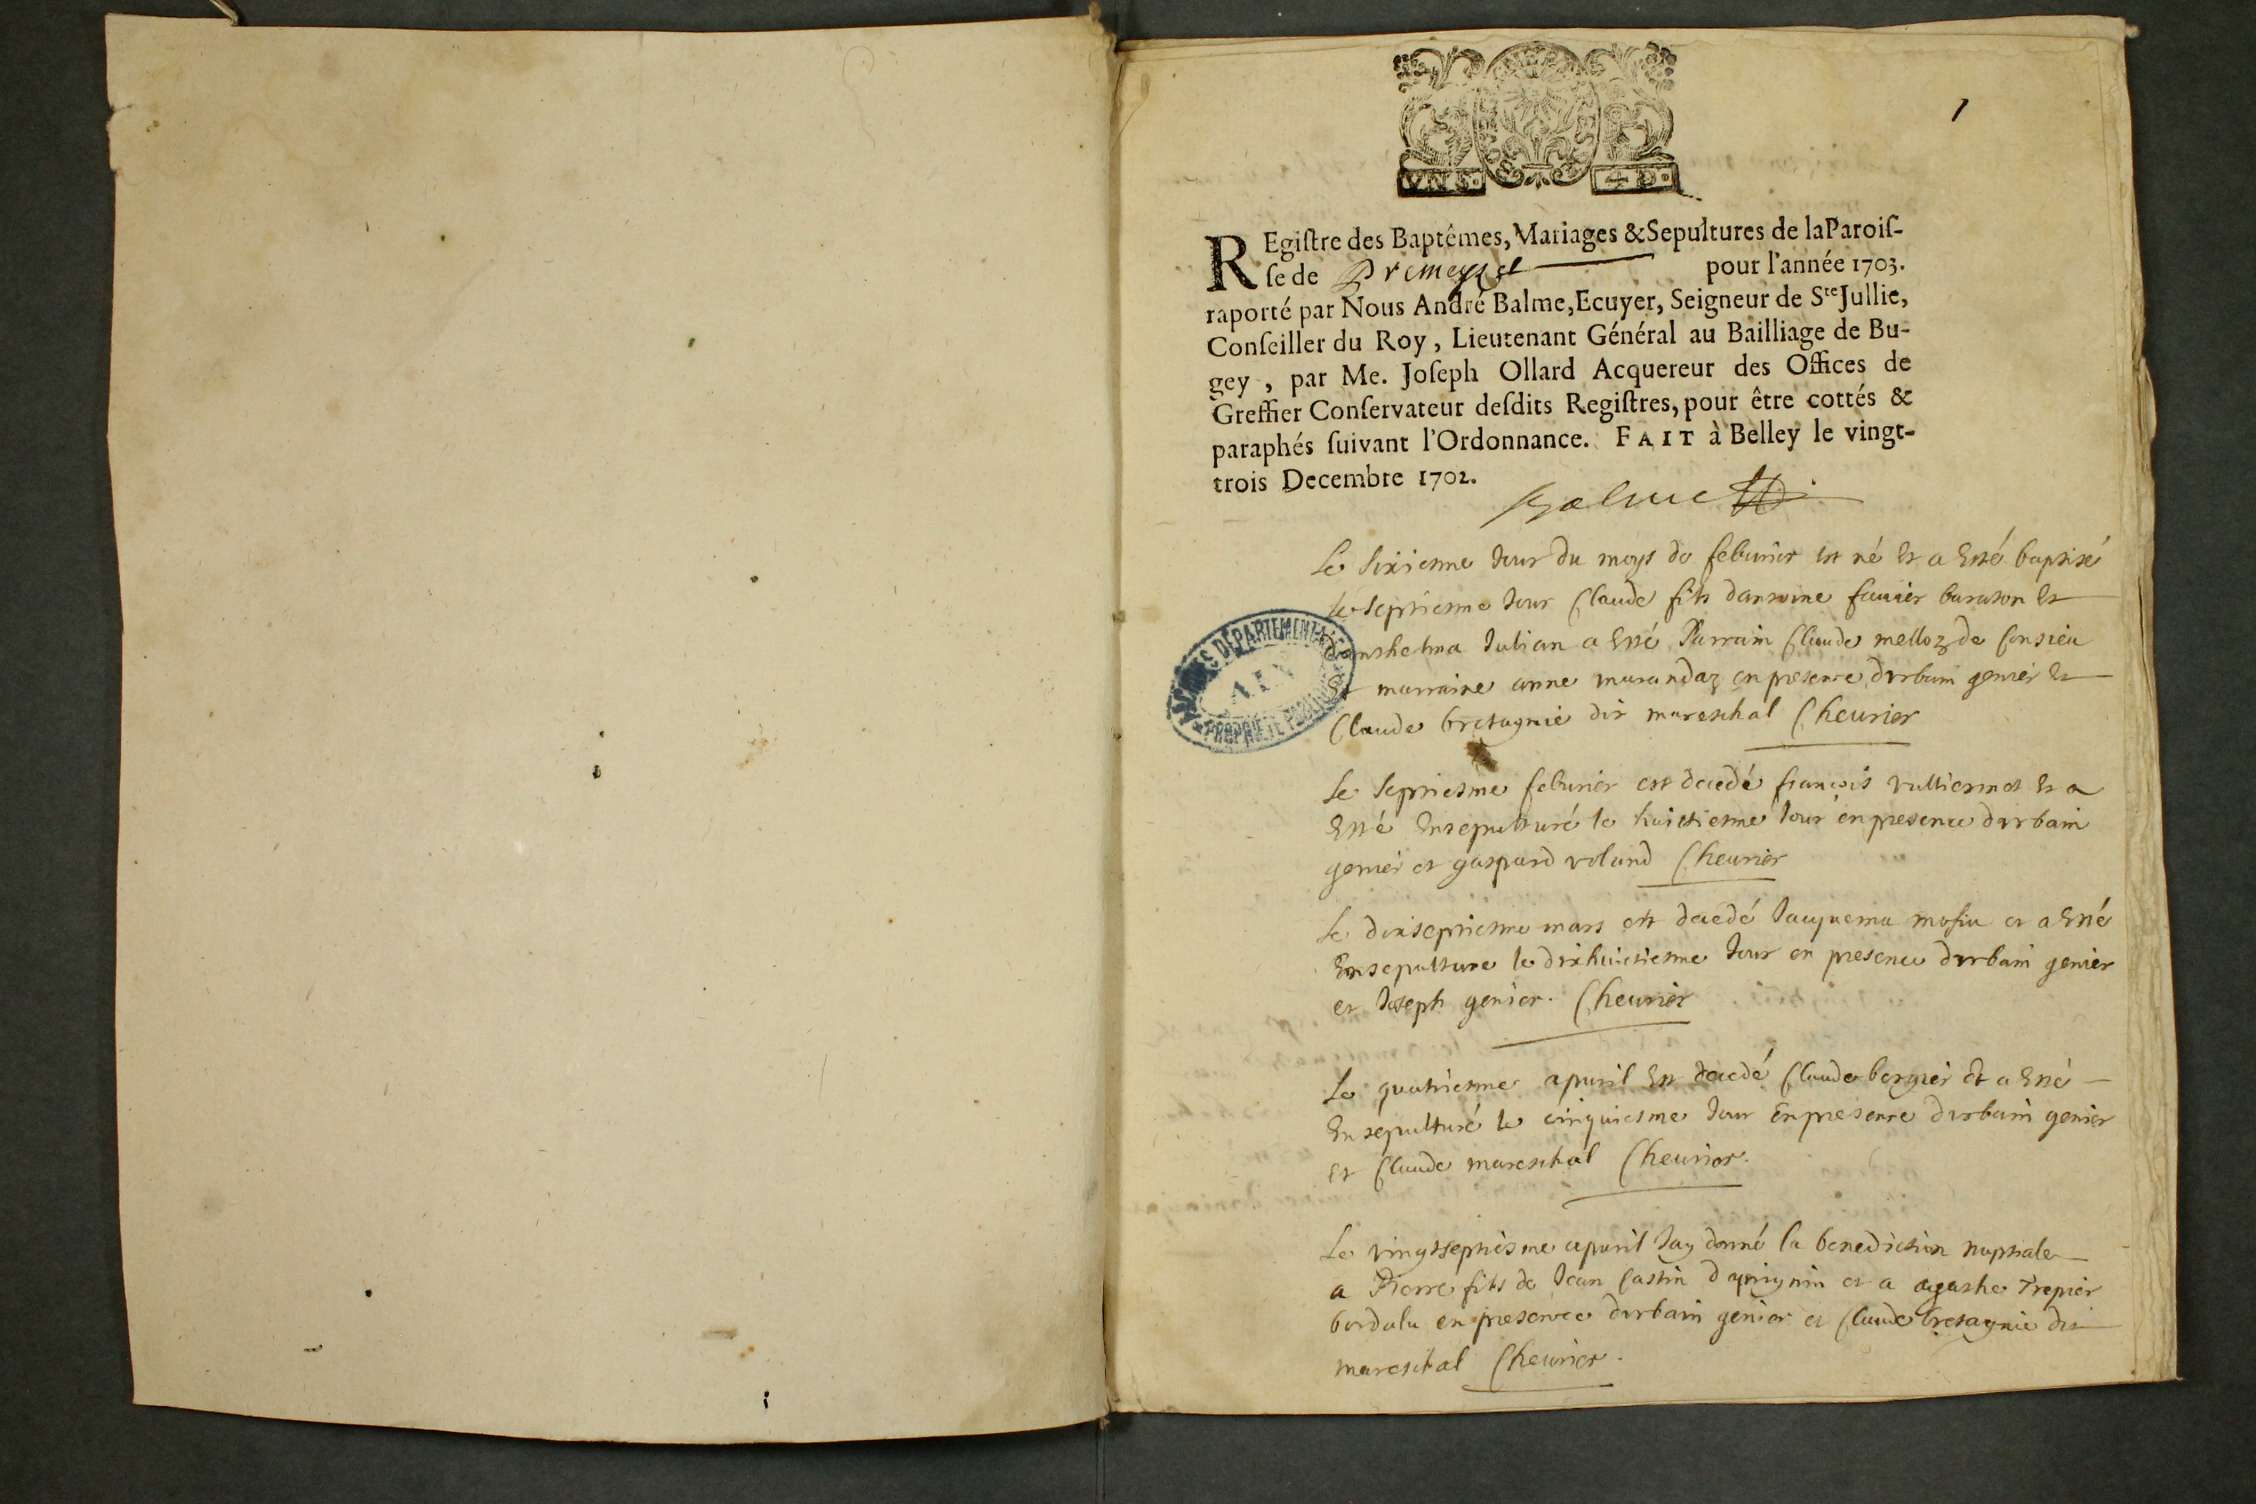 1
VN S. 4 D.
REgiſtre des Baptêmes, Mariages & Sepultures de la Paroiſ-
ſe de Premeyzel pour l'année 1703.
raporté par Nous André Balme, Ecuyer, Seigneur de Ste Jullie,
Conſeiller du Roy, Lieutenant Général au Bailliage de Bu-
gey, par Me. Joſeph Ollard Acquereur des Offices de
Greffier Conſervateur deſdits Regiſtres, pour être cottés &
paraphés ſuivant l'Ordonnance. FAIT à Belley le vingt-
trois Decembre 1702.
Balme
Le sixiesme Jour du moys de feburier est né Et a Esté baptisé
le septiesme Jour Claude fils dantoine fauier buraton Et
danthelma Julian a Esté Parrain Claude melloz de Consieu
Et marraine anne marandaz en presence durbain genier Et
Claude bretagnie dit mareschal Cheurier
ARCHIVES DÉPARTEMENTALES
AIN
PROPRIÉTÉ PUBLIQUE
Le septiesme feburier est decedé françois vulliermet Et a
Esté Ensepulturé le huictiesme Jour en presence durbain
genier et gaspard voland Cheurier
Le dixseptiesme mars est decedé Jacquema et a Esté
Ensepulture le dixhuictiesme Jour en presence durbain genier
et Joseph genier. Cheurier
Le quatriesme apuril Est decedé Claude bergier et a Esté
Ensepulturé le cinquiesme Jour En presence durbain genier
et Claude mareschal Cheurier.
Le vingtseptiesme apuril Jay donné la benediction nuptiale
a Pierre fils de Jean Castin et a agathe Trepier
bordula en presence durbain genier et Claude bretagnie dit
mareschal Cheurier.